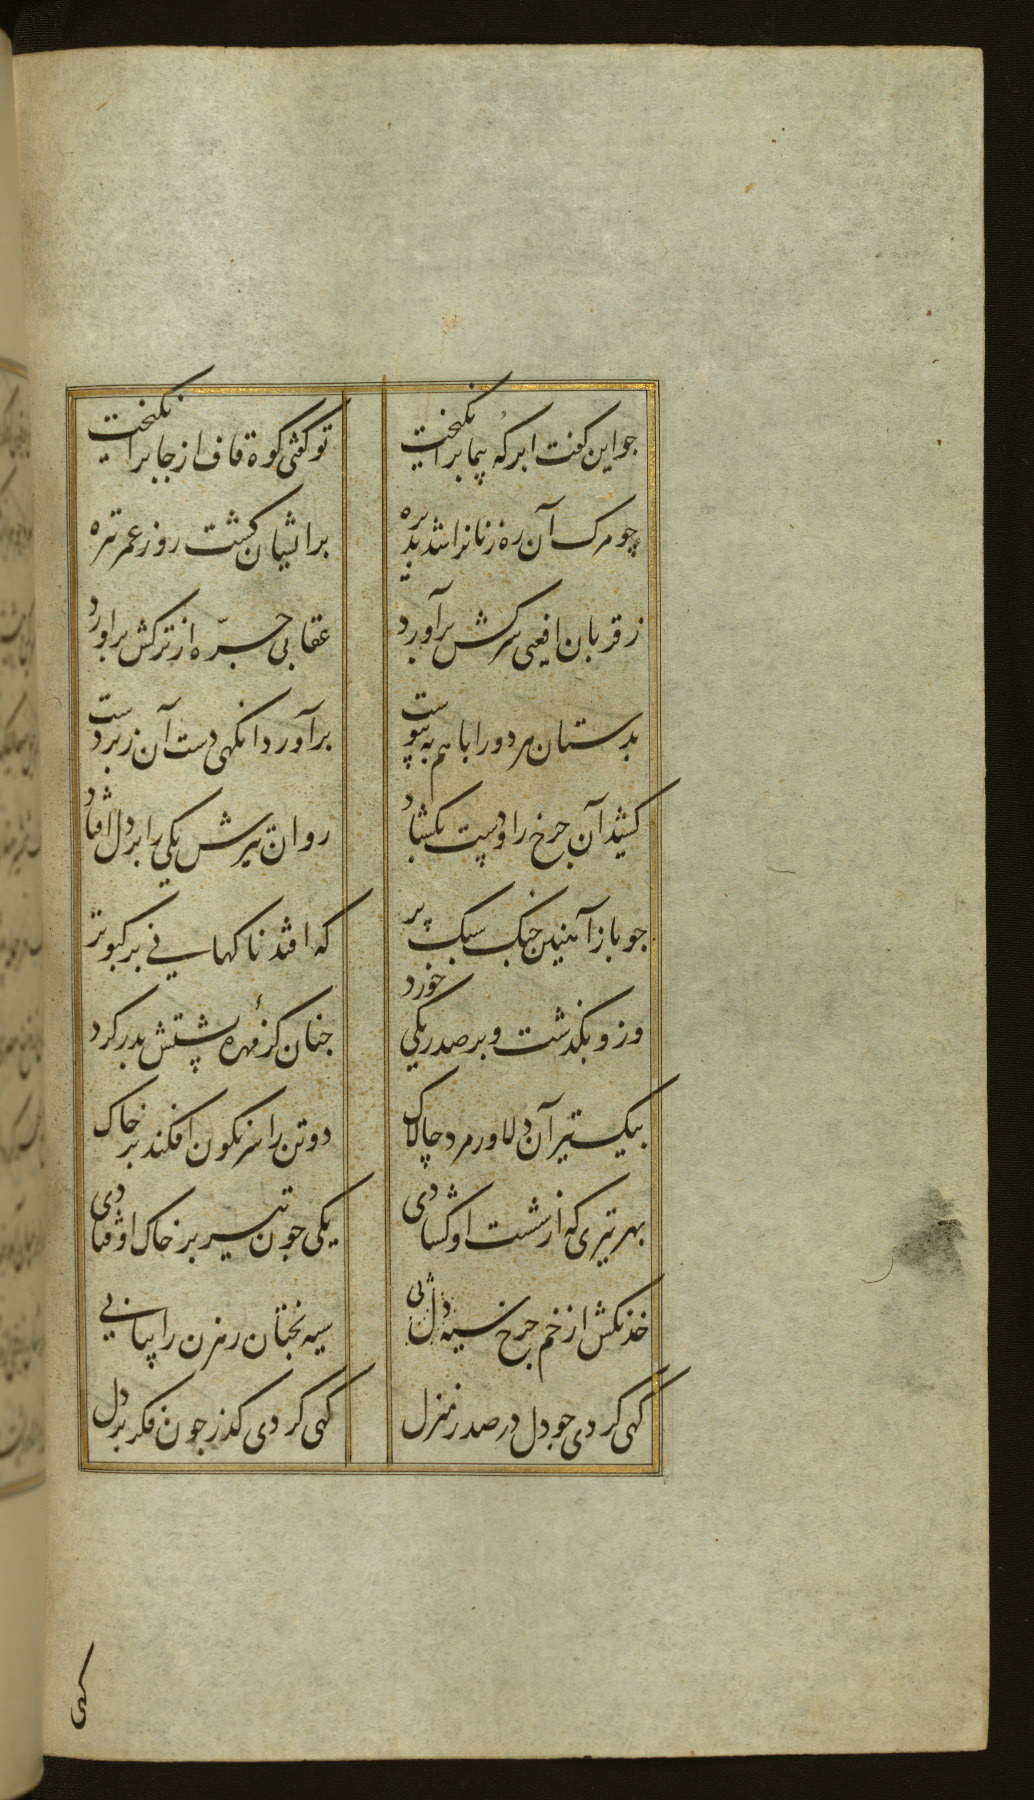 جو این کفت ابرکه پیما برانکیخت
تو کفتی کوه قاف از جا برانکیخت
چو مرک آن ره زنانرا شد پذیره
بر ایشان کشت روز عمر تیره
ز قربان افعی سرکش برآورد
عقابی جره از ترکش برآورد
بدستان مر دو را با هم به پیوست
برآورد انکهی دست آن زبردست
کشید آن جرخ را و دست بکشاد
روان تیرش یکی را بر دل افتاد
جو باز آهنین جنک سبک پر
که افتد ناکهانی بر کبوتر
وزو بکذشت و بر صدر یکی خورد
جنان کز مهره پشتش بدر کرد
بیک تیر آن دلاور مرد چالاک
دو تن را سرنکون افکند بر خاک
بهر تیری که از شست او کشادی
یکی جون تیر بر خاک اوفتادی
خدنکش از خم جرخ
سیه بختان رهزن را پیاپی
کهی کردی جو دل در صدر منزل
کهی کردی کذر جون فکر بر دل
کهی